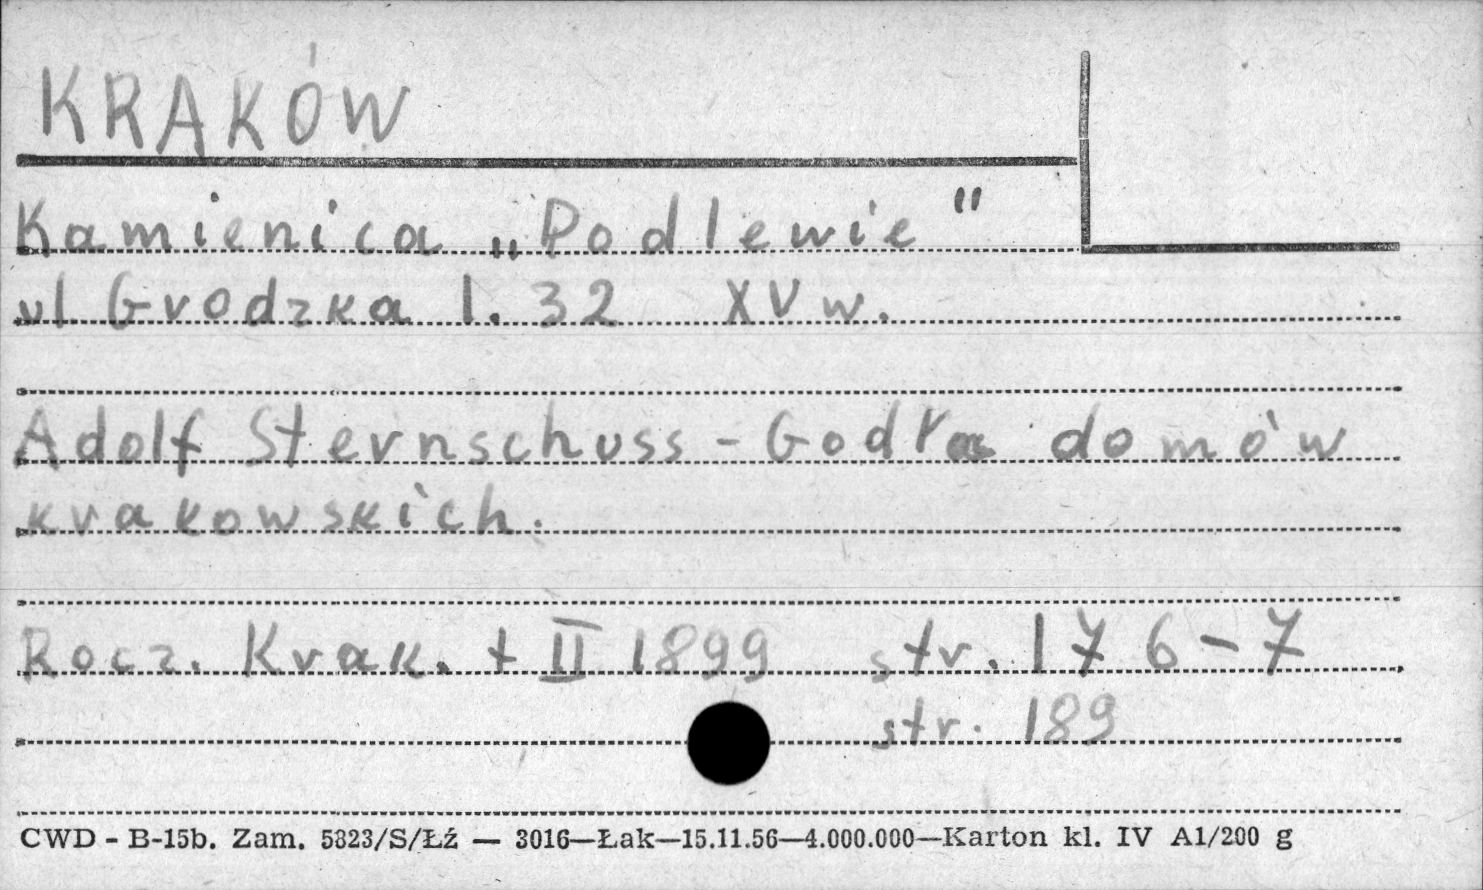 KRAKÓW
Kamienica „Podlewie"
ul Grodzka l. 32 XV w.
Adolf Sternschuss - Godła domów
krakowskich.
Rocz. Krak. t II 1899 str. 176-7
str. 189
CWD - B-15b. Zam. 5823/S/Łź — 3016—Łak—15.11.56—4.000.000—Karton kl. IV A1/200 g